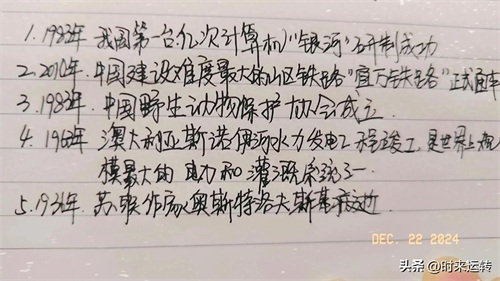 1.1983年 我国第一台亿次计算机"银河"研制成功
2.2010年 中国建设难度最大的山区铁路"宜万铁路"正式通车
3.1983年. 中国野生动物保护协会成立.
4.196年 澳大利亚斯诺伊河水力发电工程竣工,是世界上规
模最大的 电力和灌溉系统之一
5.1936年. 苏联作家奥斯特洛夫斯基逝世
DEC. 22 2024
头条 @时来运转